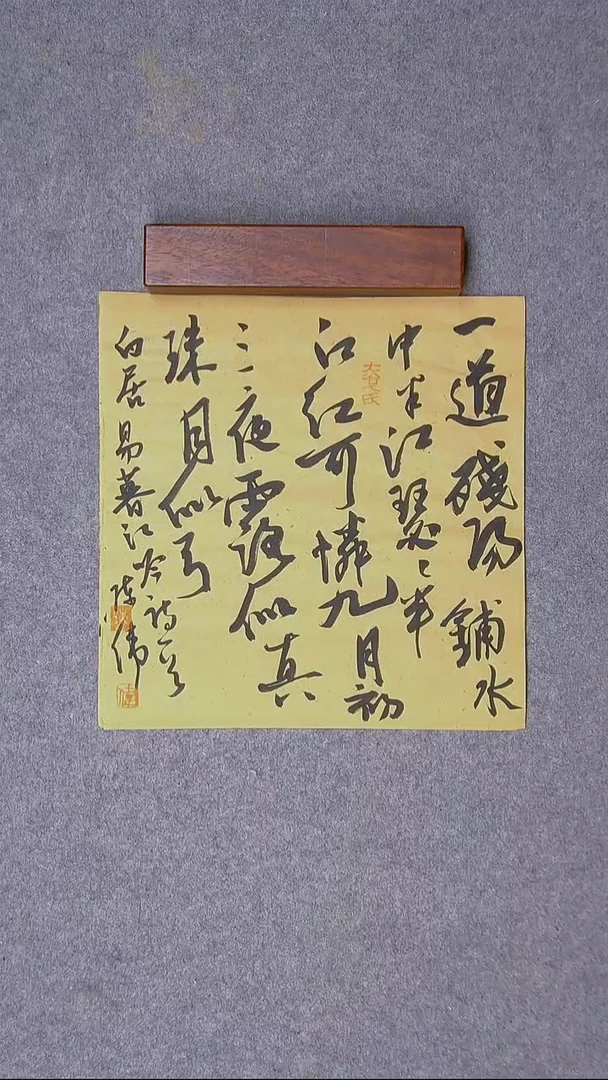 一道殘阳鋪水
中半江瑟々半
江红可憐九月初
三夜露似真
珠月似弓
白居易暮江吟诗一首
陈伟
偉